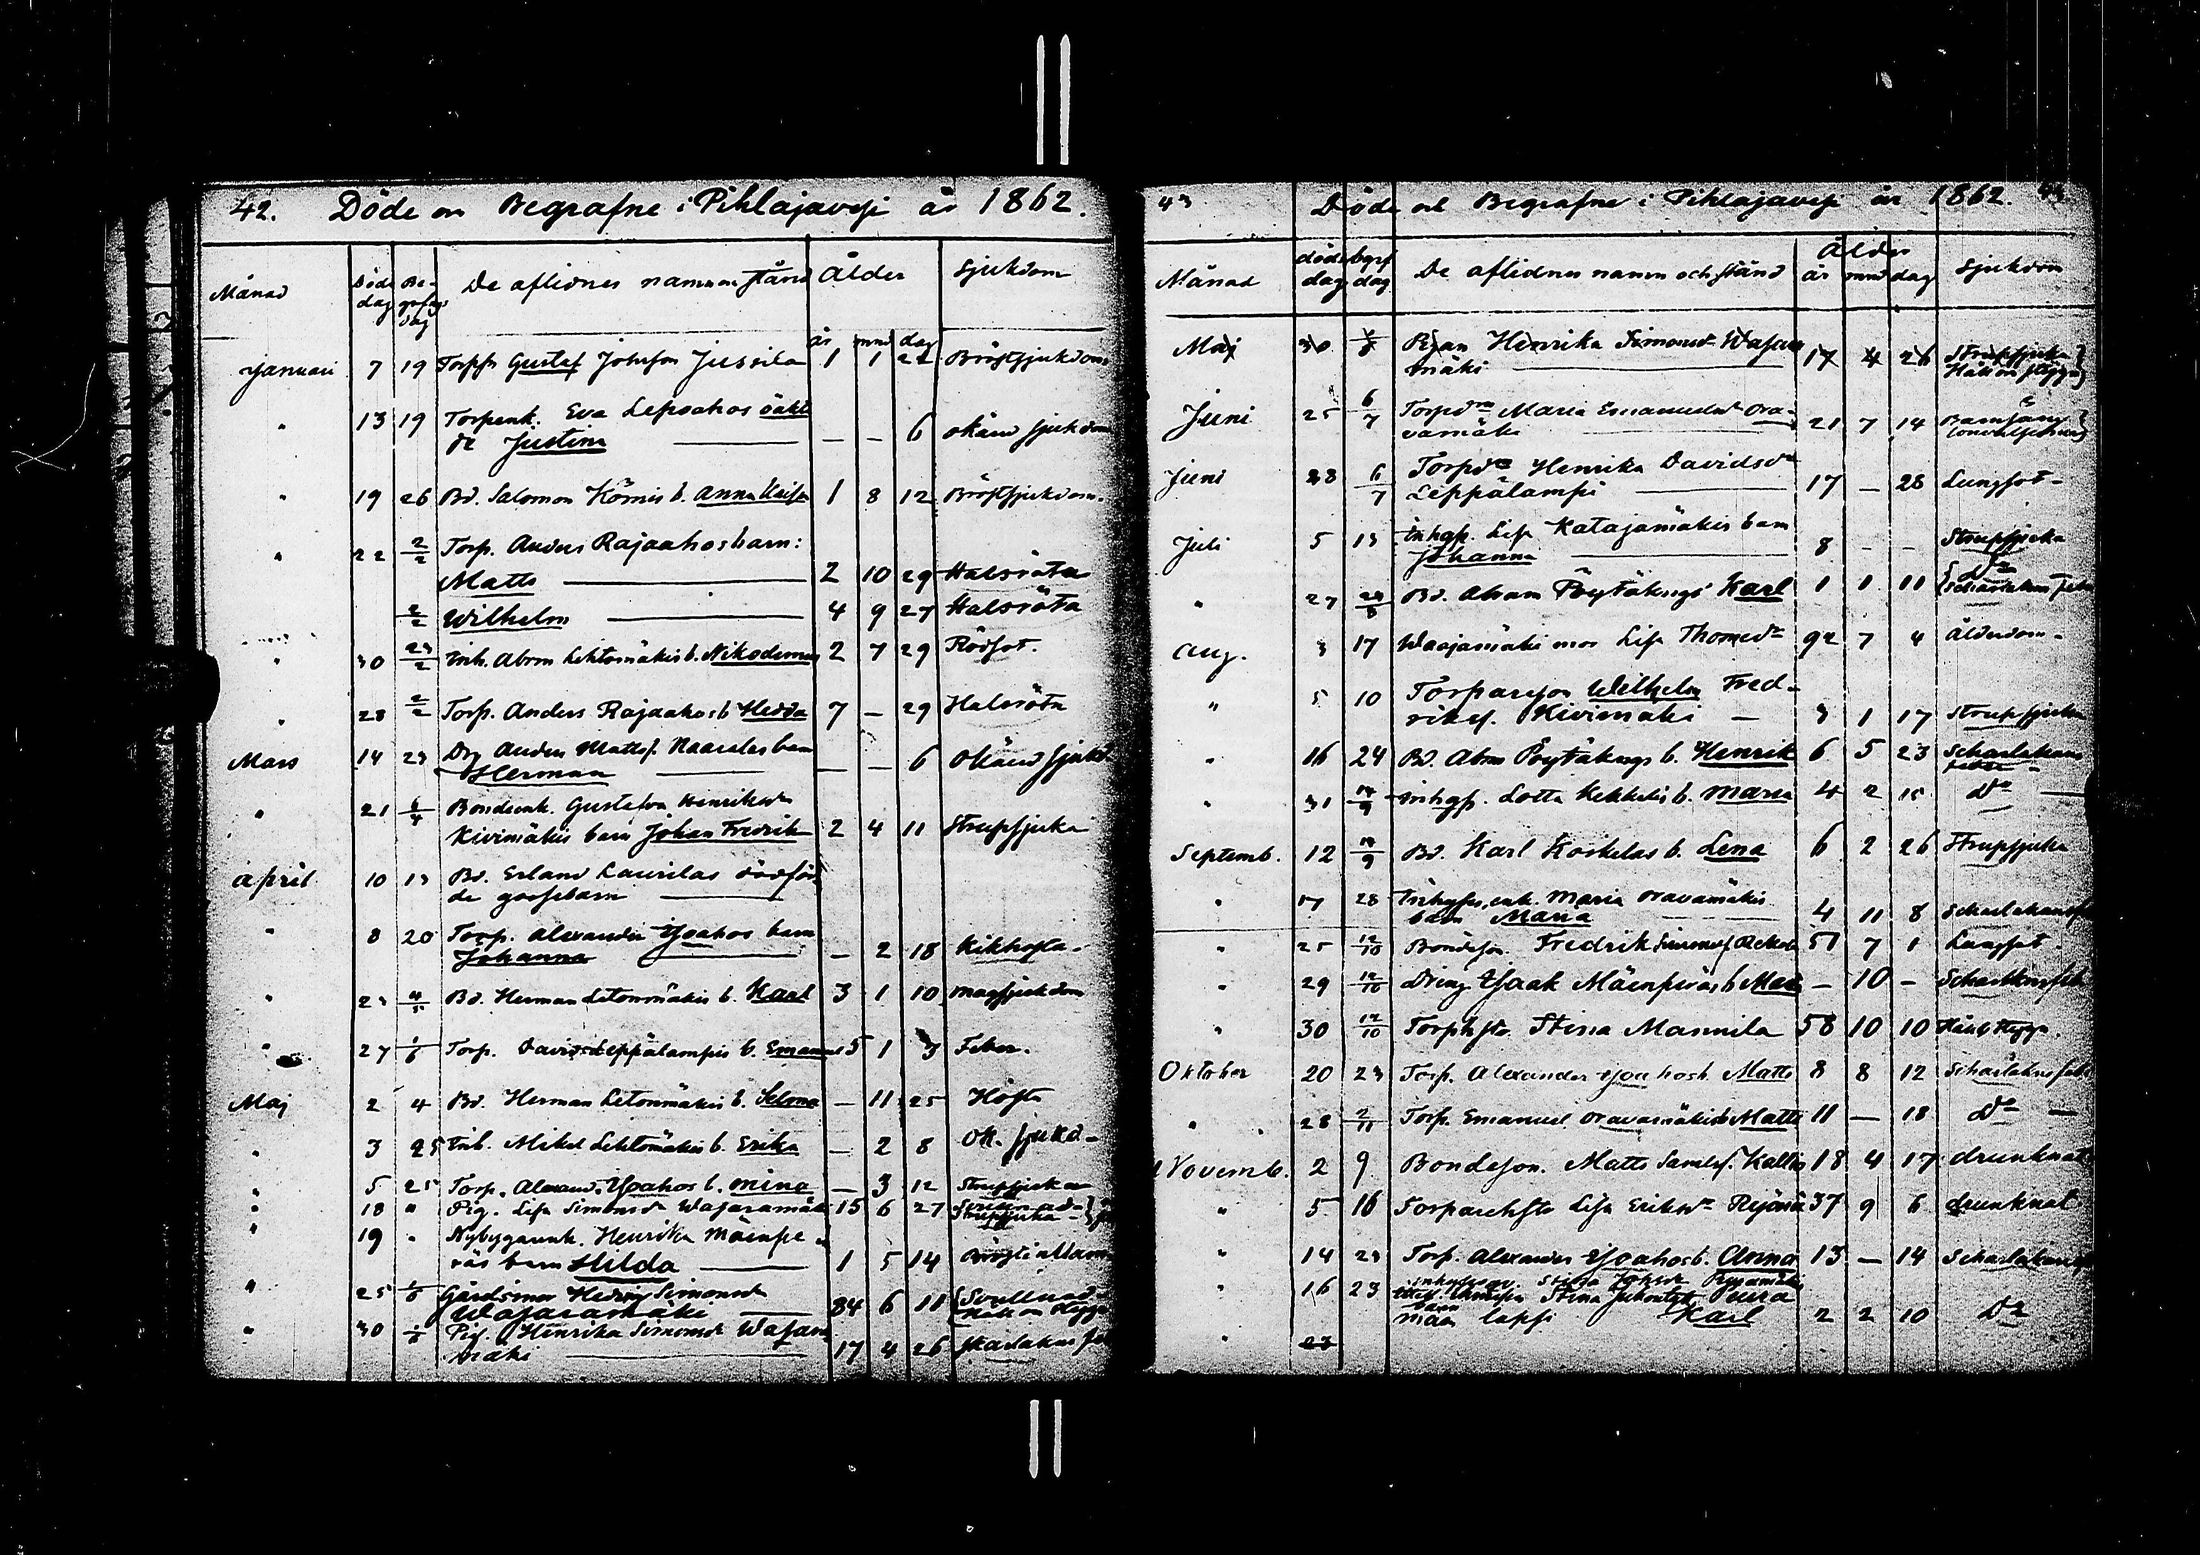 42. Döde och Begrafne i Pihlajavesi år 1862.
Månad Döde dag Be- grafgs dag De aflidnes namn och stånd Ålder Sjukdom
år mnd dag
Januari 7 19 Torpfr Gustaf Johnson Jussila 1 1 22 Bröstsjukdom
" 13 19 Torpenk. Eva Lepoahos oäkt
de Justina — — 6 okänd sjukdom
" 19 26 Bd. Salomon Körnis b. Anna Kaisa 1 8 12 Bröstsjukdom.
" 22 2/2 Torp. Anders Rajaahos barn:
Matts 2 10 29 Halsröta
2/2 Wilhelm 4 9 27 Halsröta
" 30 23/2 Inh. Abrm Lehtomäkis b. Nikodemus 2 7 29 Rödsot.
" 28 2/2 Torp. Anders Rajaahos b Hedda 7 — 29 Halsröta
Mars 14 23 Dg Anders Mattss. barn
Herman — — 6 Okänd sjukd.
" 21 6/4 Bondenk. Gustafva Henriksdr
Kivimäkis barn Johan Fredrik 2 4 11 Strupsjuka
April 10 13 Bd. Erland Laurilas dödföd-
de gossebarn
" 8 20 Torp. Alexander Isoahos barn
Johanna — 2 18 Kikhosta
" 23 4/5 Bd. Herman Letonmäkis b. Karl 3 1 10 magsjukdom
" 27 1/6 Torp. David Leppälampis b. Emanuel 5 1 3 Feber.
Maj 2 4 Bd. Herman Letonmäkis b. Selma — 11 25 Hosta
" 3 25 Inh. Mikel Lehtomäkis b. Erika — 2 8 Ok. sjukd
" 5 25 Torp. Alexand. Isoahos b. Mina — 3 12 Strupsjuka
" 18 " Pig. Lisa Simonsdr Wajaramäki 15 6 27 Strupsjuka
" 19 " Nybyggarenk. Henrika Mäenpe
räs barn Hilda 1 5 14
" 25 1/6 Gårdsmor Hedvig Simonsdr
Wajaramäki 84 6 11 Håll och Stygn
" 30 1/6 Pig. Henrika Simonsdr Wajara
mäki 17 4 26 Skarlakans feb
43 Döde och Begrafne i Pihlajavesi år 1862. 43
Månad döde dag begrf dag De aflidnes namn och stånd Ålder år mnd dag Sjukdom
Maj 30 1/6 Pigan Henrika Simonsd Wajara
mäki 17 4 26 Strupsjuka Håll och stygn
Juni 25 6/7 Torpdr Maria Emanuelsdr Ora-
vamäki 21 7 14 Barnsäng convulsioner
Juni 28 6/7 Torpdr Henrika Davidsdr
Leppälampi 17 — 28 Lungsot
Juli 5 13 Inhgs. Lisa Katajamäkis barn
Johanna 8 — — Strupsjuka
" 27 Bd. Abram Pöytäkngs Karl 1 1 11 Do Scharlakans feber
Aug. 3 17 Waajamäki mor Lisa Thomasdr 92 7 4 Ålderdom
" 5 10 Torparson Wilhelm Fred-
riks. Kivimäki 3 1 17 Strupsjuka
" 16 24 Bd. Abm Pöytäkngs b. Henrik 6 5 23 Scharlakans feber
" 31 14/9 Inhgs. Lotta Kekkelis b. Maria 4 2 15 Do
Septemb. 12 14/9 Bd. Karl Koskelas b. Lena 6 2 26 Strupsjuka
" 17 28 Inhyses enk. Maria Oravamäkis
barn Maria 4 11 8 Scharlakansf
" 25 12/10 Bondeson Fredrik Simons 51 7 1 Lungsot
" 29 12/10 Dreng Isaak Mäenperäs b — 10 — Scharlknsfeb
" 30 12/10 Torphstr Stina Mannila 58 10 10 Håll Stygn.
Oktober 20 23 Torp. Alexander Isoahos b. Matts 8 8 12 Scharlaknsfeb
" 28 2/11 Torp. Emanuel Oravamäkis b Matts 11 — 18 Do
Novemb. 2 9 Bondeson. Matts Samls. Kallio 18 4 17 drunknat
" 5 16 Torparehstr Lisa Eriksdr 37 9 6 drunknat
" 14 23 Torp. Alexander Isoahos b. Anna 13 — 14 Scharlakansf
" 16 23 Inhyses Stina
Stina Peura
barn lapsi Karl 2 2 10 Do
" 23